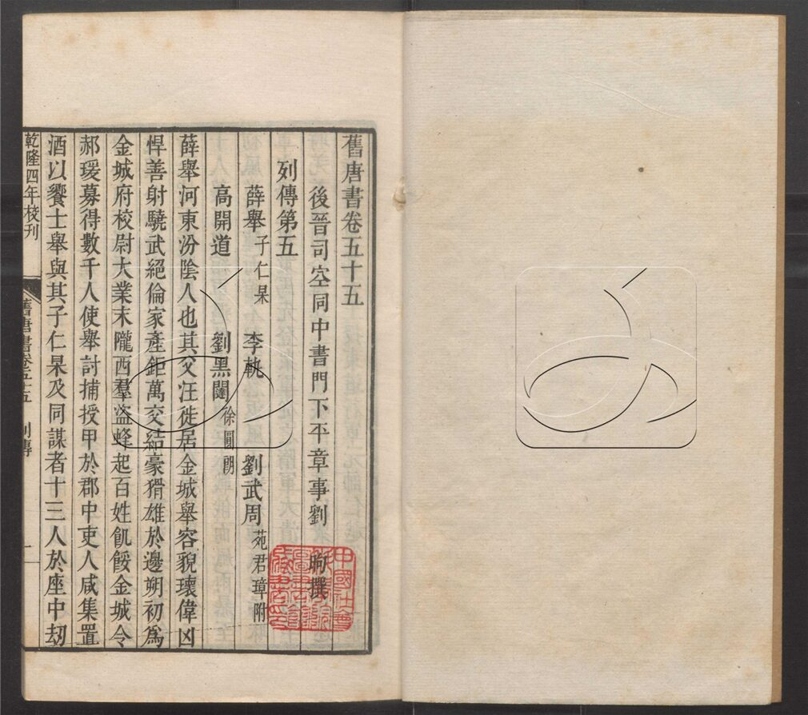 舊唐書卷五十五
後晉司空同中書門下平章事劉昫撰
列傳第五
薛舉 子仁杲 李軌 劉武周 苑君璋附
高開道 劉黑闥 徐圓朗
薛舉河東汾陰人也其父汪徙居金城舉容貌瓌偉凶
悍善射驍武絕倫家產鉅萬交結豪猾雄於邊朔初為
金城府校尉大業末隴西羣盜蜂起百姓飢餒金城令
郝瑗募得數千人使舉討捕授甲於郡中吏人咸集置
酒以饗士舉與其子仁杲及同謀者十三人於座中劫
乾隆四年校刊 舊唐書卷五十五 列傳 一